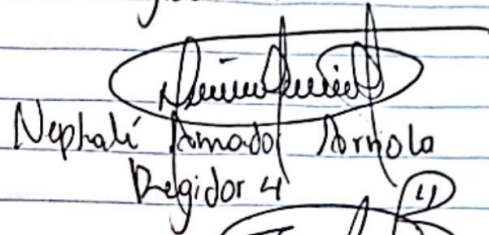 Nephalí Amador Arriola
Regidor 4
4